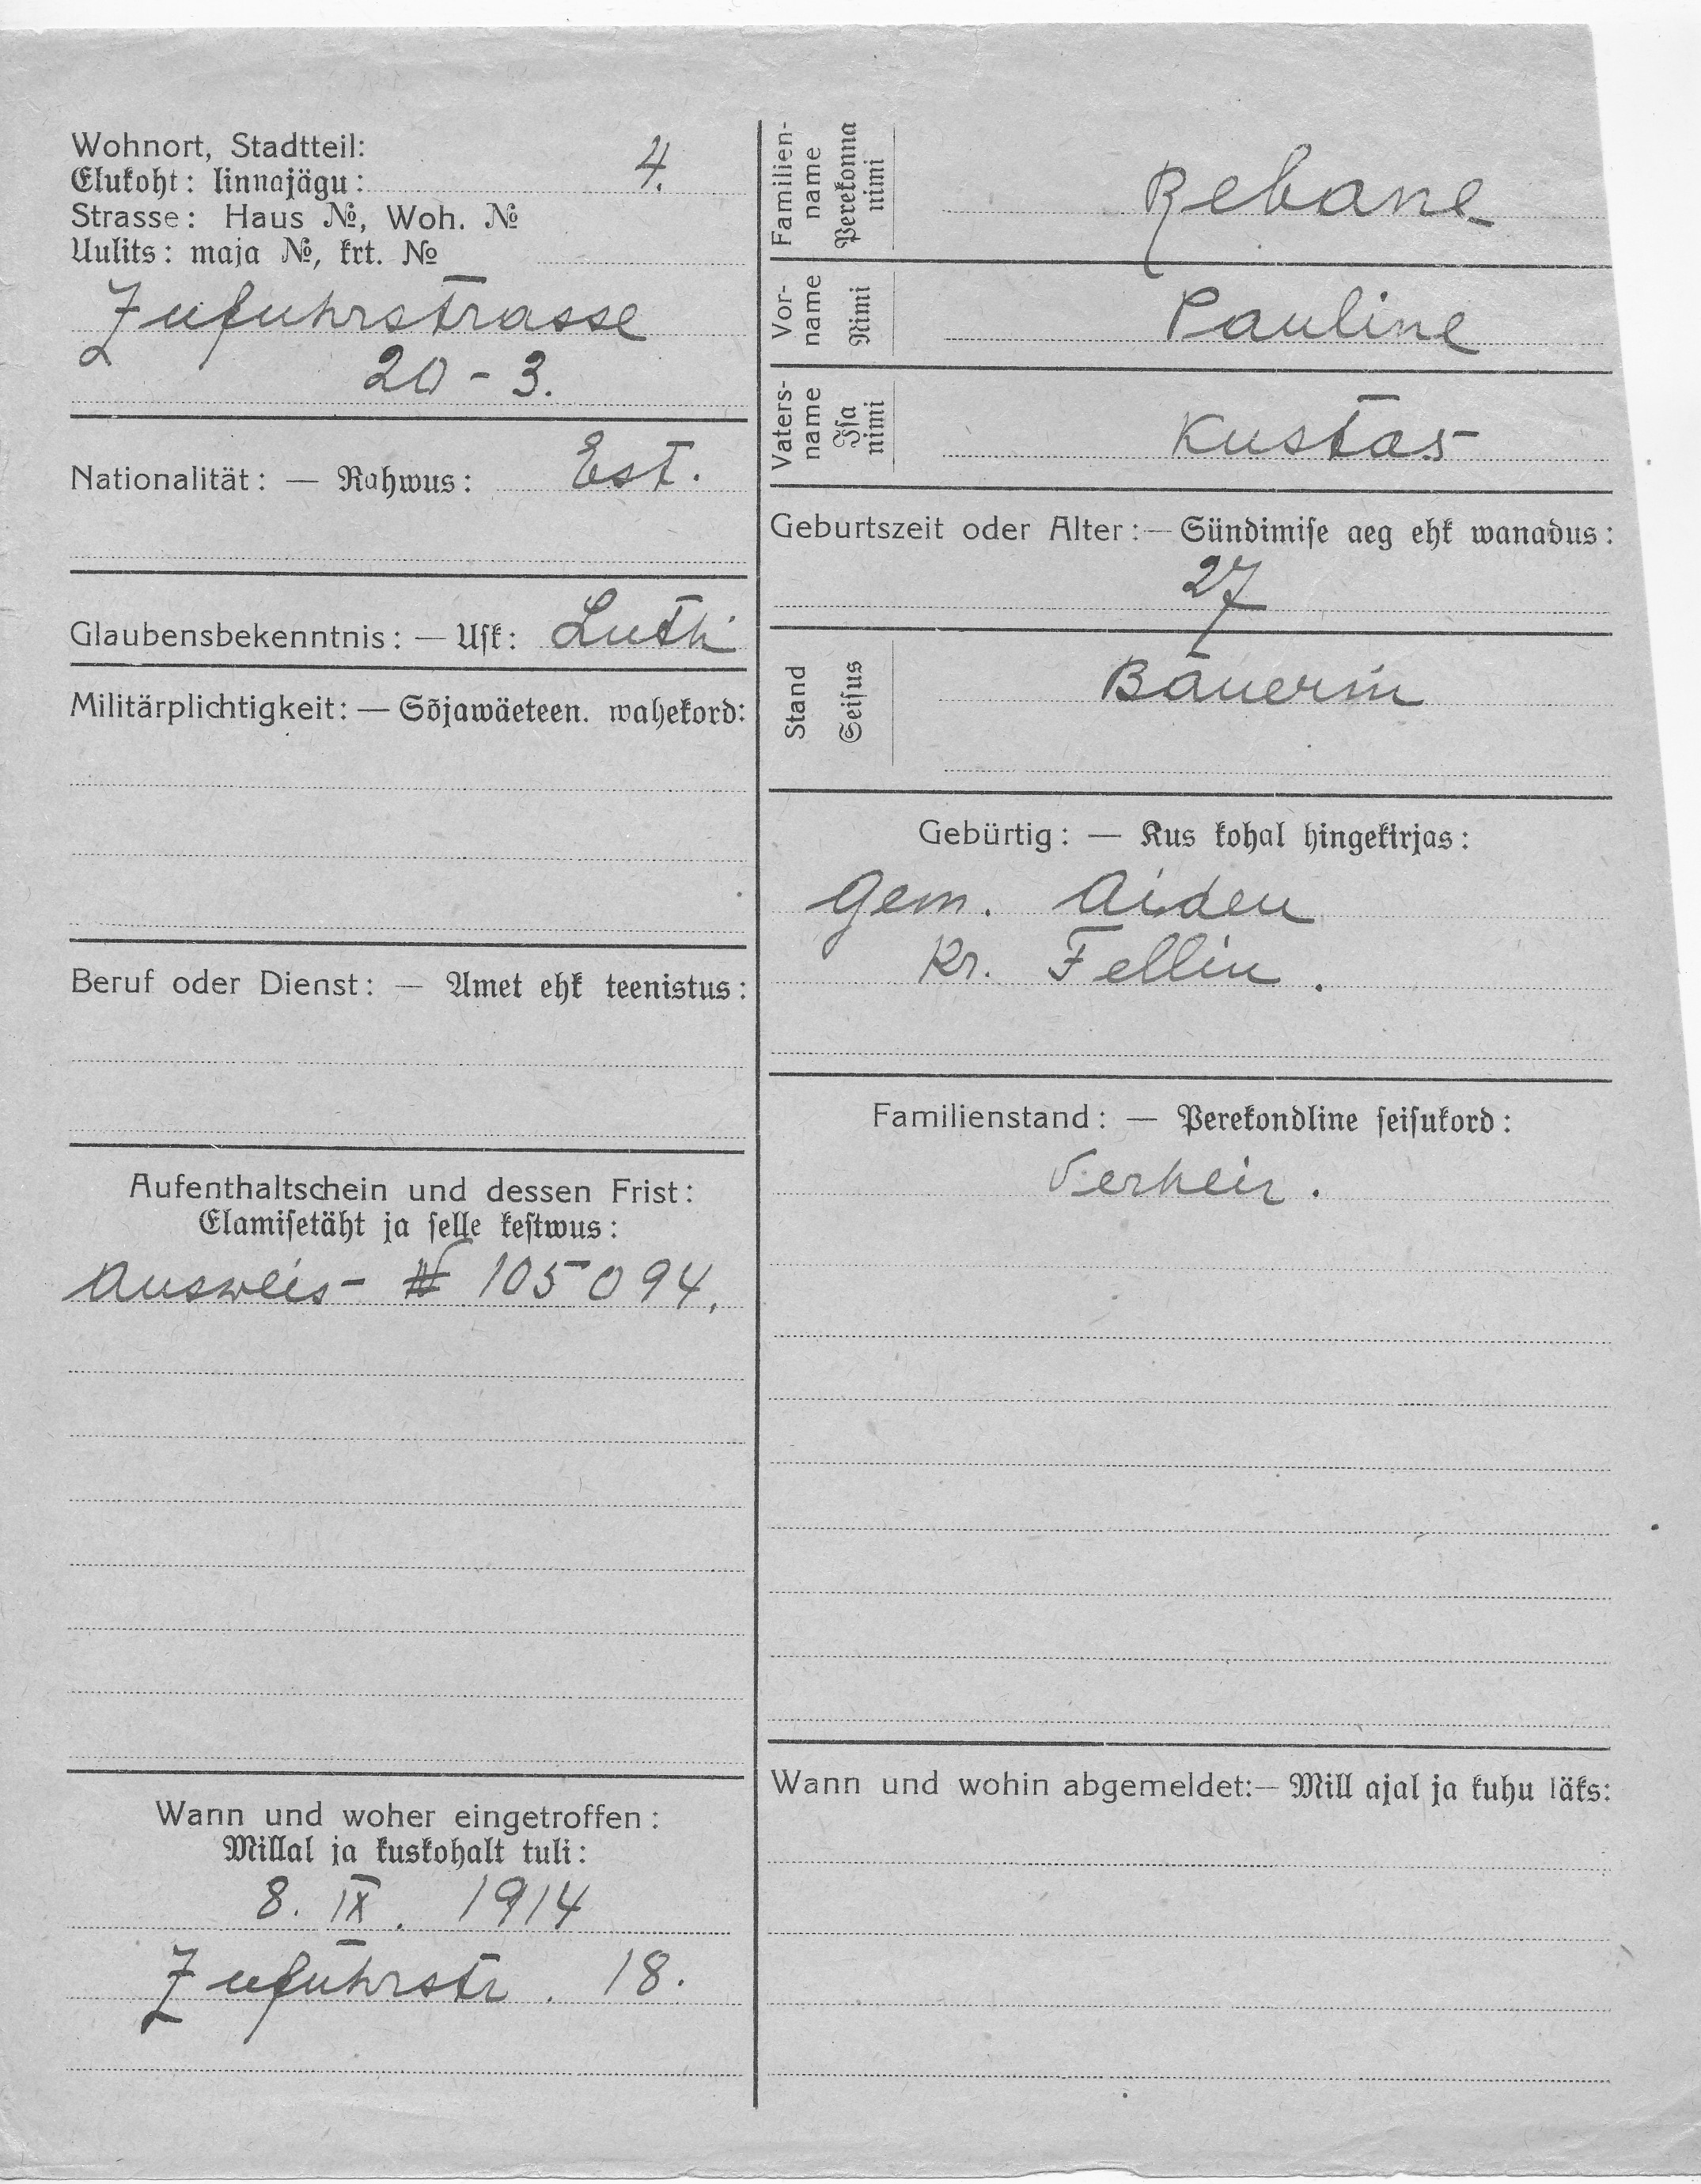 Wohnort, Stadtteil:
Elukoht: linnajägu: 4.
Strasse: Haus №, Woh. №
Uulits: maja №, krt. №
Zufuhrstrasse
20 - 3.
Nationalität: — Rahwus: Est.
Glaubensbekenntnis: — Usk: Luth.
Militärplichtigkeit: — Sõjawäeteen. wahekord:
Beruf oder Dienst: — Amet ehk teenistus:
Aufenthaltschein und dessen Frist:
Elamisetäht ja selle kestwus:
Ausweis - № 105094.
Wann und woher eingetroffen:
Millal ja kuskohalt tuli:
8. IX. 1914
Zufuhrstr. 18.
Familien-
name
Perekonna
nimi
Rebane
Vor-
name
Nimi
Pauline
Vaters-
name
Isa
nimi
Kustas
Geburtszeit oder Alter: — Sündimise aeg ehk wanadus:
27
Stand
Seisus
Bäuerin
Gebürtig: — Kus kohal hingekirjas:
Gem. Aiden
Kr. Fellin.
Familienstand: — Perekondline seisukord:
Verheir.
Wann und wohin abgemeldet: — Mill ajal ja kuhu läks: